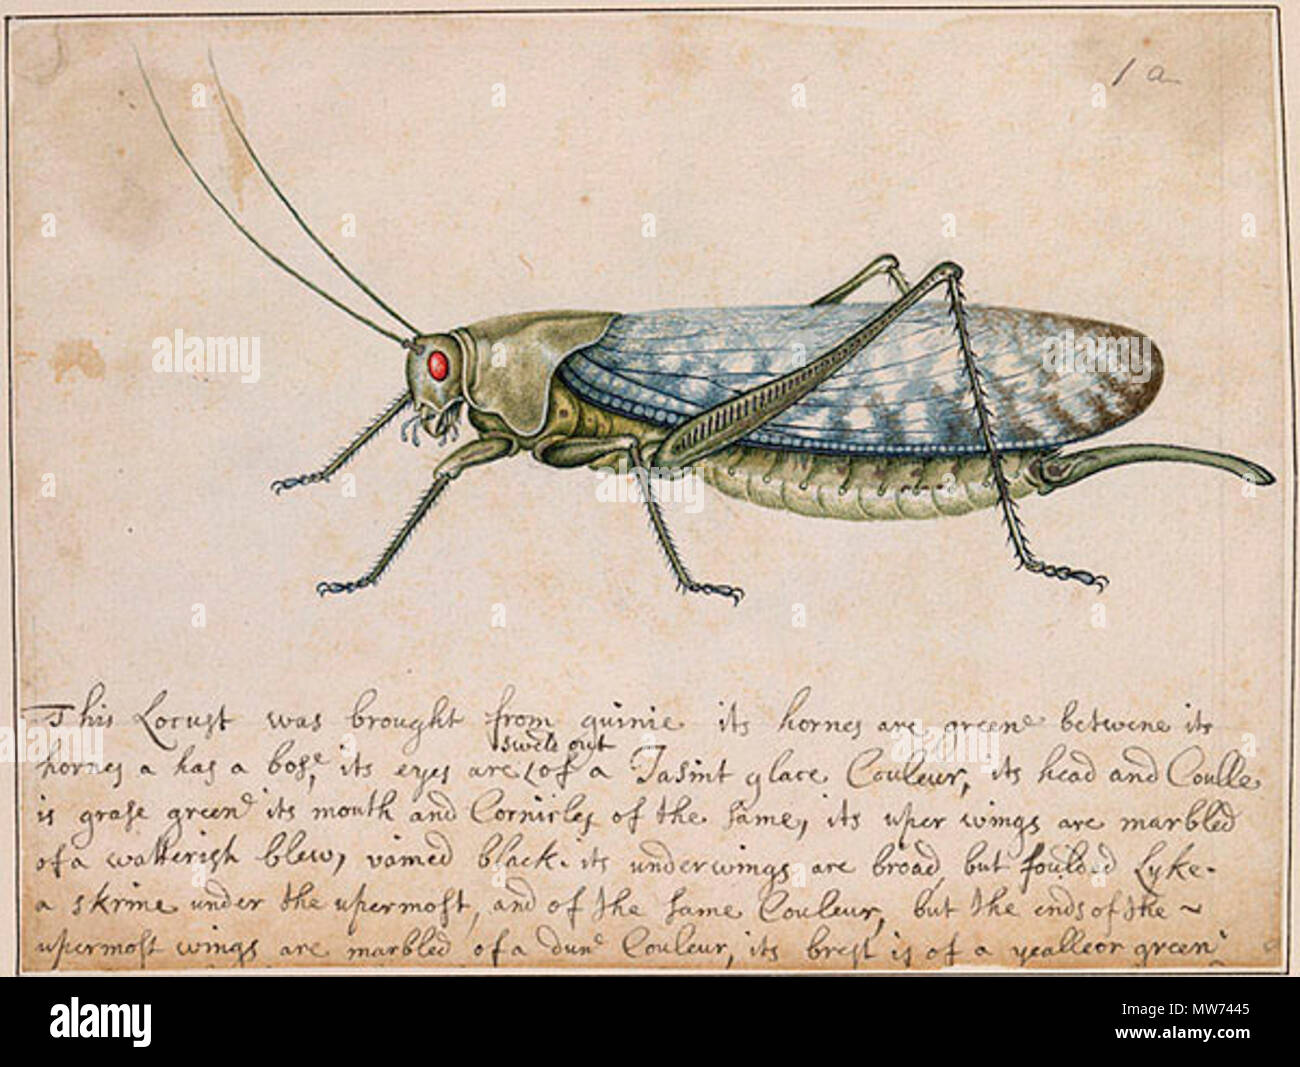 1 a
This Locust was brought from guinie its hornes are greene betwene its
swels out
hornes a has a bose, its eyes are of a Jasint glace Couleur, its head and Coulle
is grase greene its mouth and Cornicles of the same, its uper wings are marbled
of a watterish blew, vained black. its underwings are broad, but foulded Lyke
a skrine under the upermost, and of the same Couleur, but the ends of the ~
upermost wings are marbled of a dune Couleur, its brest is of a yealleor greene
alamy
Image ID: MW7445
www.alamy.com